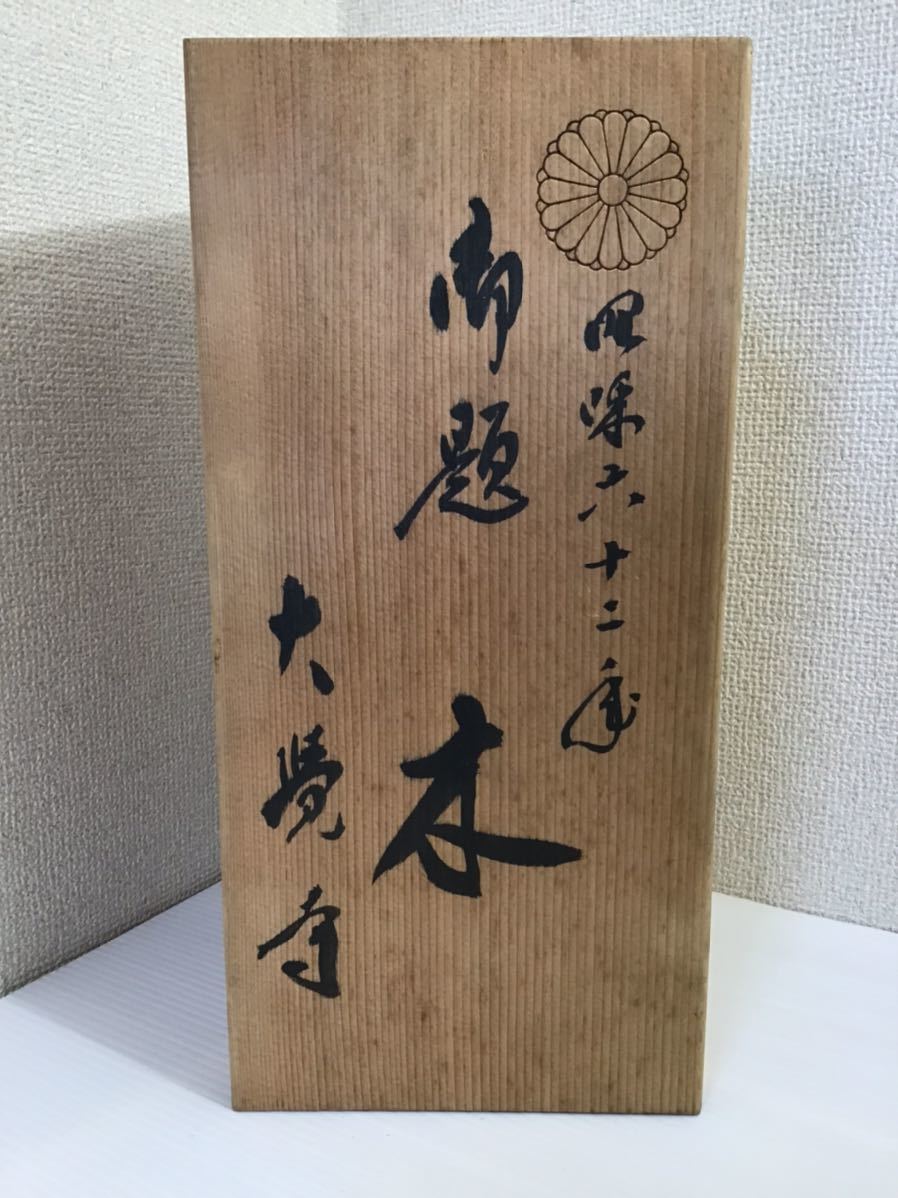 昭和六十二年
御題
木
大覺寺